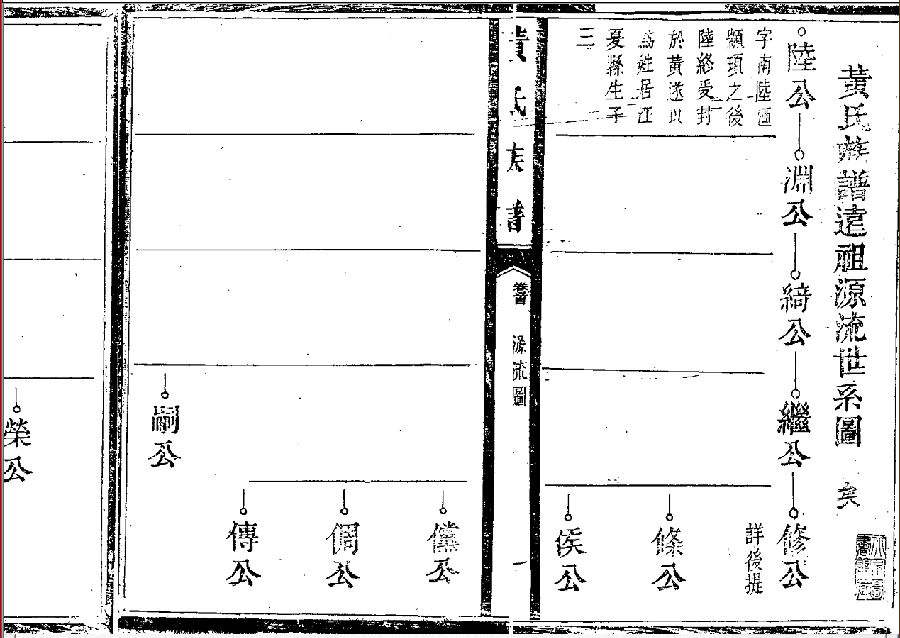 黃氏族譜遠祖源流世系圖
陸公
字南陸迺
顓頊之後
陸終受封
於黃遂以
為姓居江
夏縣生子
三
淵公
綺公
繼公
修公
詳後提
條公
侯公
黃氏族譜
卷首
源流圖
儻公
倜公
傳公
嗣公
榮公